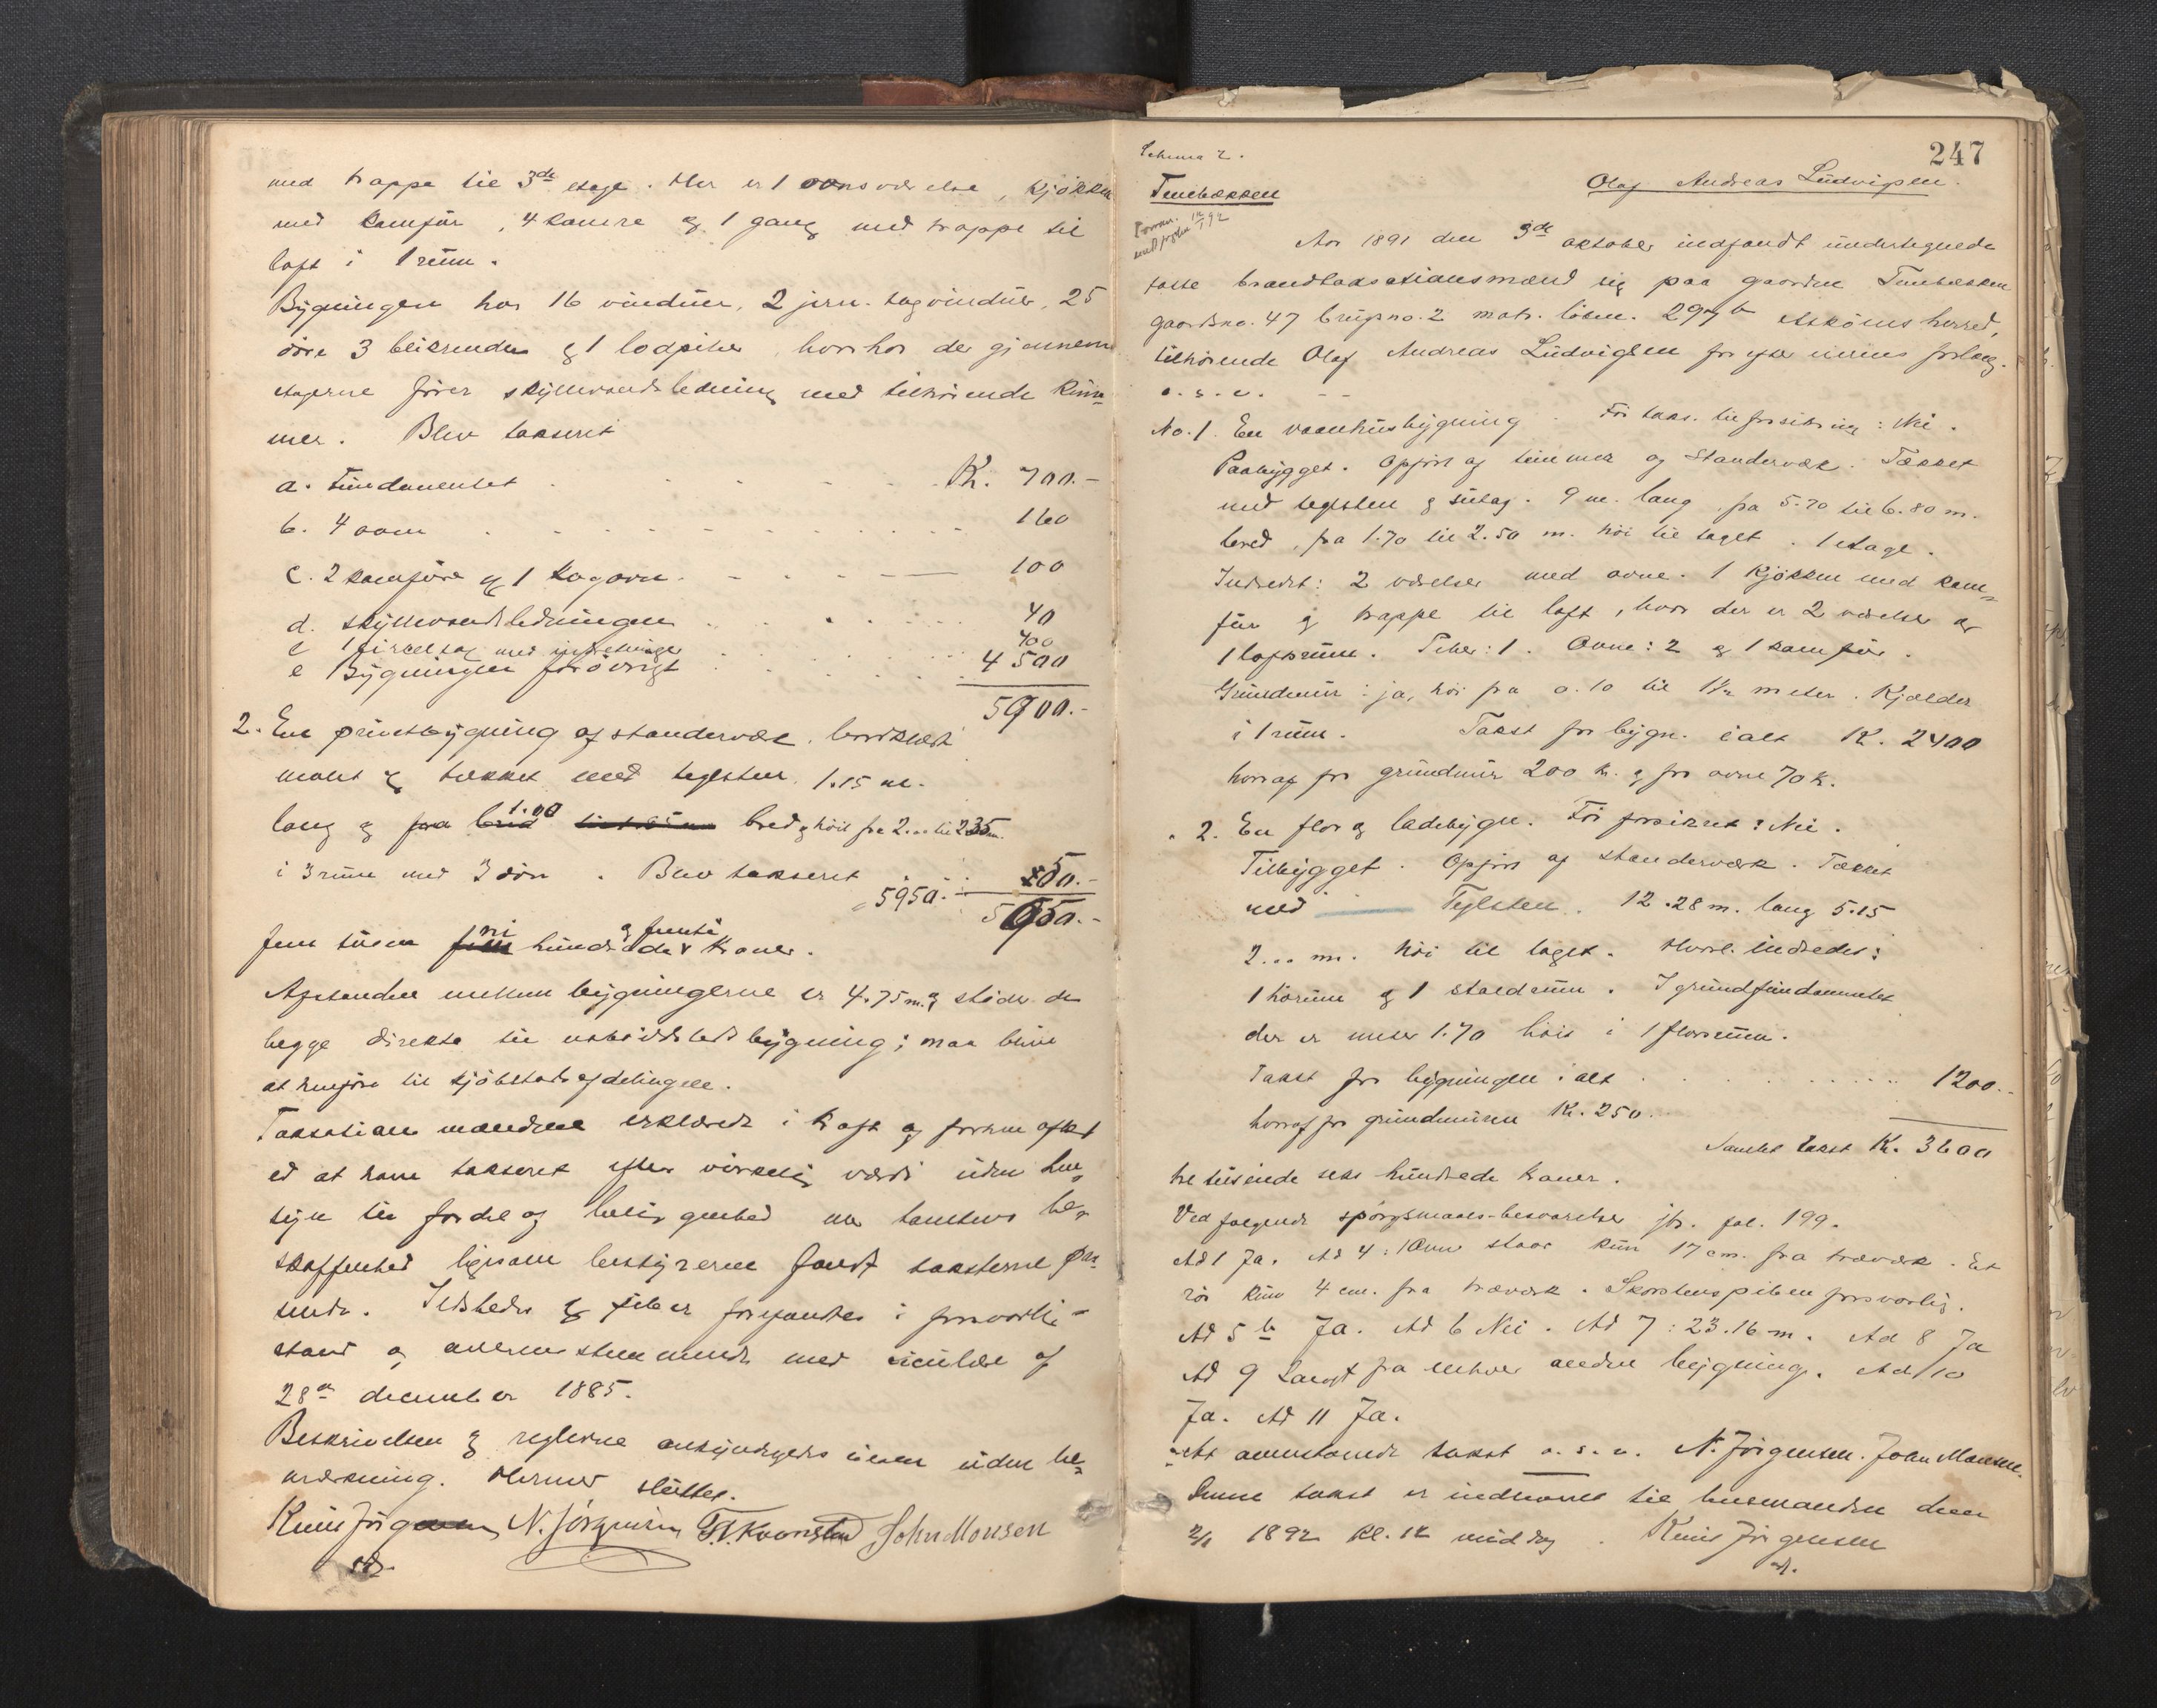 med trappe til 3de etage. Her er 1 værelse, kjøkken
med komfür, 4 kamre og 1 gang med trappe til
loft i 1 rüm.
Bygningen har 16 vindüer, 2 jern-tagvindüer, 25
döre 3 blikrender og 1 lodpibe, hvorhos der gjennem
etagerne förer skyllevandsledning med tilhörende küm-
mer. Blev takseret
a. Fündamentet K. 700.-
b. 4 ovne 160
c. 2 komfüre og 1 kogovn 100
d. skyllevandsledningen 40
e 1 med indretninger 400
e Bygningen forövrigt 4500
5900.-
2. En privetbygning af standerværk, bordklædt
malet og tækket med teglsten, 1.15 m.
lang og fra bred 1.00 bred og höi fra 2... til 2.35 m.
i 3 rüm med 3 döre. Blev takseret 50.-
5950.- 5950.-
fem tüsen fem ni hündrede og femti kroner.
Afstanden mellem bygningerne er 4.75 m. og stöder de
begge direkte til bygning; maa blive
at henföre til kjöbstadsafdelingen.
Taksationsmændene erklærede i kraft af forhen aflagt
ed at have takseret efter virkelig værdi üden hen-
syn til fordelag beliggenhed eller tomtens be-
skaffenhed ligesom bestyreren fandt taksterne pas-
sende. Ildsteder og piber forefandtes i forsvarlig
stand og overensstemmende med cirkülære af
28de december 1885.
Beskrivelsen og reglerne üden be-
mærkning. Hermed slüttet.
Knüt Jörgensen N. Jörgensen T. T. Kvernsted John Monsen
sdr.
247
Schema 2.
Tenebækken
Olaf Andreas Lüdvigsen.
Fornr. 12/1 92
Aar 1891 den 3de oktober indfandt ündertegnede
faste brandtaksationsmænd sig paa gaarden Tenebækken
gaardsno. 47 brügsno. 2 matr. löben. 297 b Asköens herred,
tilhörende Olaf Andreas Lüdvigsen for efter eierens forlang.
o. s. v. - -
No. 1. En vaanhüsbygning. För taks. til forsikring: Nei.
Paabygget. Opfört af tömmer og Standerværk. Tækket
med teglsten og sütag. 9 m. lang, fra 5.70 til 6.80 m.
bred, fra 1.70 til 2.50 m. höi til taget. 1 etage.
Indredet: 2 værelser med ovne. 1 kjökken med kom-
für og trappe til loft, hvor der er 2 værelser og
1 loftsrüm. Piber: 1. Ovne: 2 og 1 komfür.
Gründmür: ja, höi fra 0.10 til 1½ meter. Kjælder
i 1 rüm. Takst for bygn. ialt K. 2400
hvoraf for gründmür 200 K. og for ovne 70 K.
" 2. En flor og ladebygn. För forsikret: Nei.
Tilbygget. Opfört af standerværk. Tækket
med Teglsten. 12.28 m. lang 5.15
2... m. höi til taget. Hvorl. indredet:
1 hörüm og 1 staldrüm. I gründfündamentet
der er ünder 1.70 höit i 1 florrüm.
Takst for bygningen ialt 1200.-
hvoraf for gründmüren Kr. 250.
Samlet takst K. 3600
tre tüsinde seks hündrede kroner.
Ved fölgende spörgsmaals-besvarelse jfr. fol. 199.
Ad 1 Ja. Ad 4: 1 Ovn staar kün 17 cm. fra træværk. Et
rör kün 4 cm. fra træværk. Skorstenspiben forsvarlig.
Ad 5 b Ja. Ad 6 Nei. Ad 7: 23.16 m. Ad 8 Ja
Ad 9 Langt fra enhver anden bygning. Ad 10
Ja. Ad 11 Ja.
At ovenstaaende takst o. s. v. N. Jörgensen. John Monsen.
Denne takst er indleveret til lensmanden den
2/1 1892 kl. 12 middag. Knüt Jörgensen